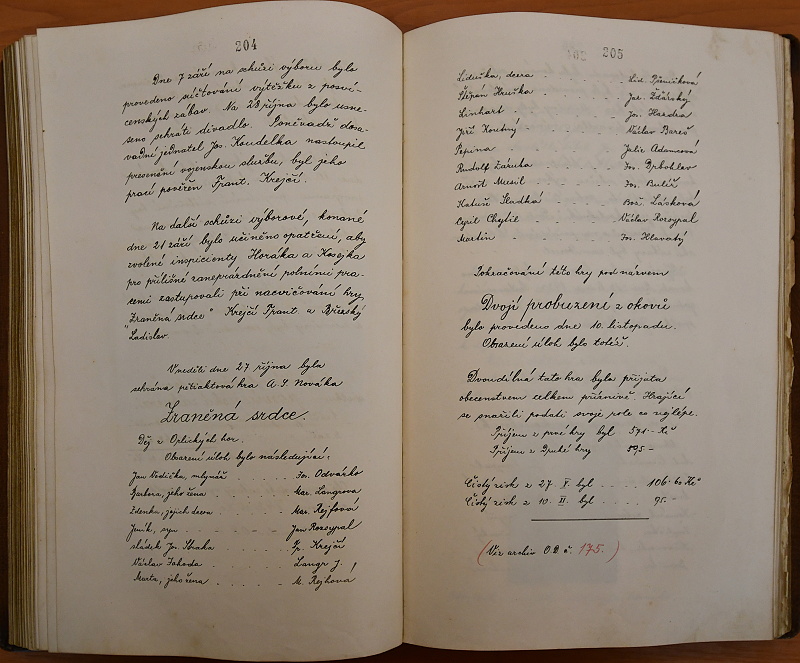 204
Dne 7 září na schůzi výboru bylo
provedeno súčtování výtěžku z posví-
cenských zábav. Na 28 října bylo usne-
seno sehráti divadlo. Poněvadž dosa-
vadní jednatel Jos. Koudelka nastoupil
presenční vojenskou službu, byl jeho
prací pověřen Frant. Krejčí.
Na další schůzi výborové, konané
dne 21 září bylo učiněno opatření, aby
zvolené inspicienty Horáka a Kosejka
pro přílišné zaneprázdnění polními pra-
cemi zastupovali při nacvičování hry
"Zraněná srdce" Krejčí Frant. a Břeský
Ladislav.
V neděli dne 27 října byla
sehrána pětiaktová hra A. S. Nováka
Zraněná srdce.
Děj z Orlických hor.
Obsazení úloh bylo následující:
Jan Vodička, mlynář Jos. Odvárko
Barbora, jeho žena . . . . . Mar. Langrova
Zdenka, jejich dcera Mar. Rejfová
Jeník, syn Jan Rozsypal
sládek Jos. Straka . . . . Fr. Krejčí
Václav Jahoda . . . . . Langr J.
Marta, jeho žena . . . . . M. Rejhova
205
Liduška, dcera Lid. Pšeničková
Štěpán Hruška Jar. Žďárský
Linhart Jos. Hazdra
Jiří Koutný Václav Bareš
Pepina Julie Adamcová
Rudolf Záruba Jos. Brbohlav
Arnošt Musil Jos. Bulíř
Katuše Sladká Bož. Lásková
Cyril Chytil Václav Rozsypal
Martin Jos. Hlavatý
Pokračování této hry pod názvem
Dvojí probuzení z okovů
bylo provedeno dne 10. listopadu.
Obsazení úloh bylo totéž.
Dvoudílná tato hra byla přijata
obecenstvem celkem příznivě. Hrající
se snažili podati svoje role co nejlépe.
Příjem z prvé hry byl 571.- Kč
Příjem z Druhé hry 595.-
Čistý zisk z 27. X. byl . . . . . 106.60 Kč
Čistý zisk z 10. II. byl . . . . 95.-
(Viz archiv O.D. č. 175.)